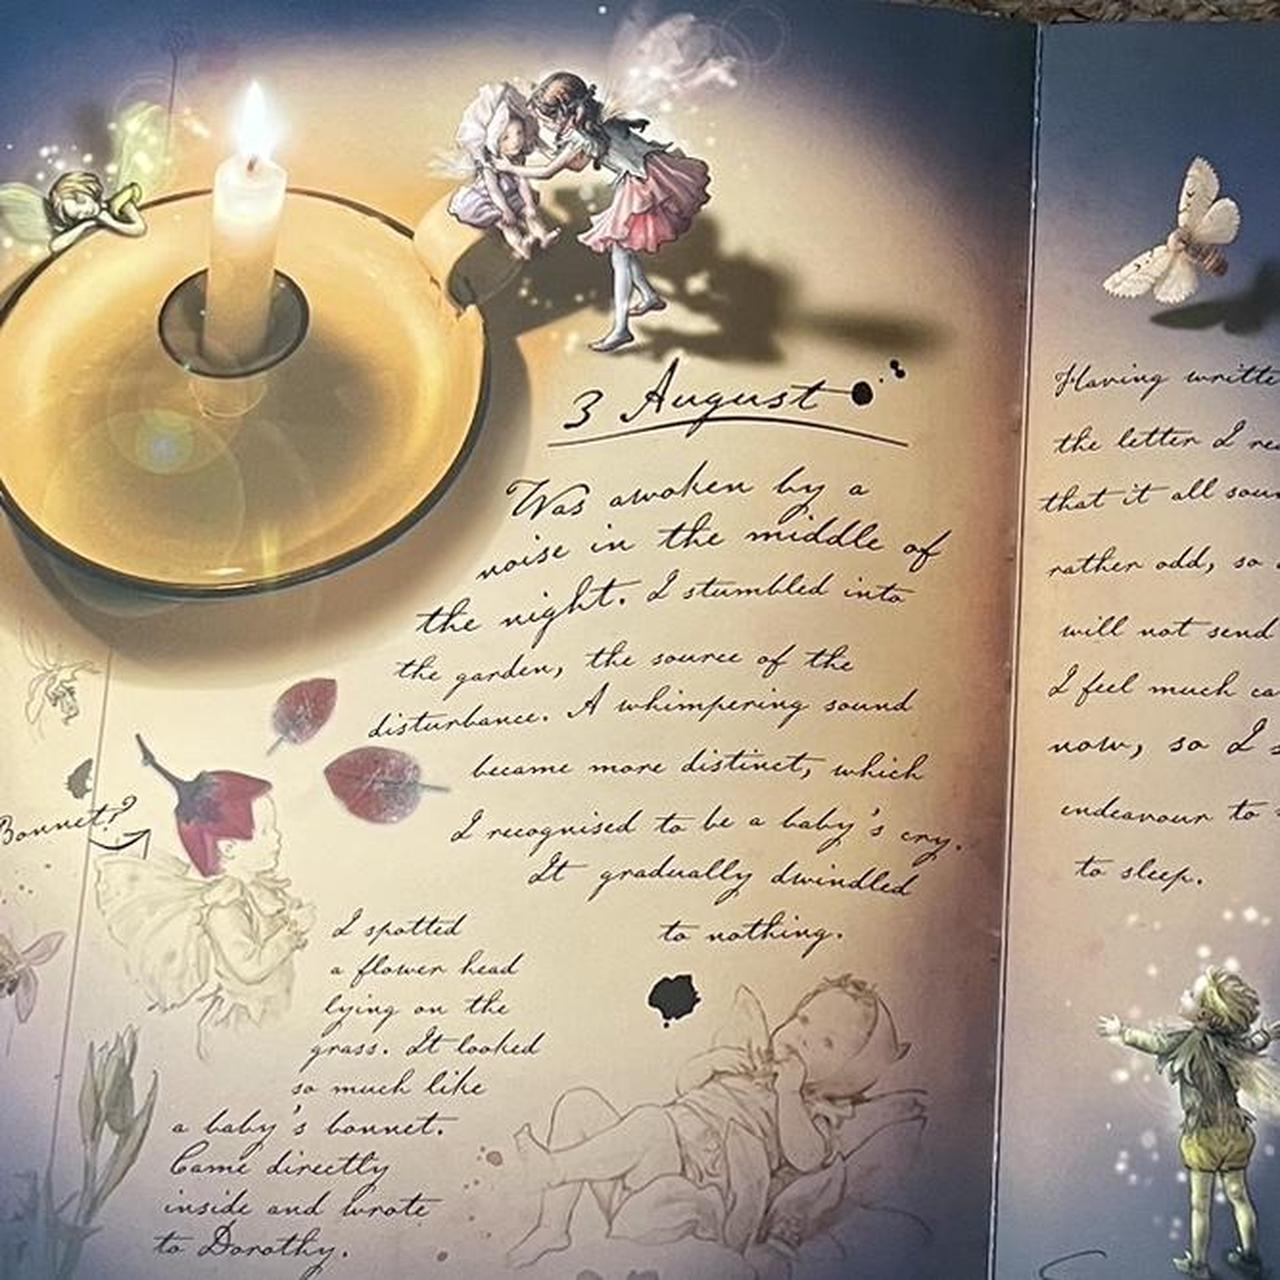 3 August
Was awoken by a
noise in the middle of
the night. I stumbled into
the garden, the source of the
disturbance. A whimpering sound
became more distinct, which
I recognised to be a baby's cry.
It gradually dwindled
to nothing.
Bonnet?
I spotted
a flower head
lying on the
grass. It looked
so much like
a baby's bonnet.
Came directly
inside and wrote
to Dorothy.
Having
the letter I
that it all
rather odd, so
will not send
I feel much
now, so I
endeavour to
to sleep.